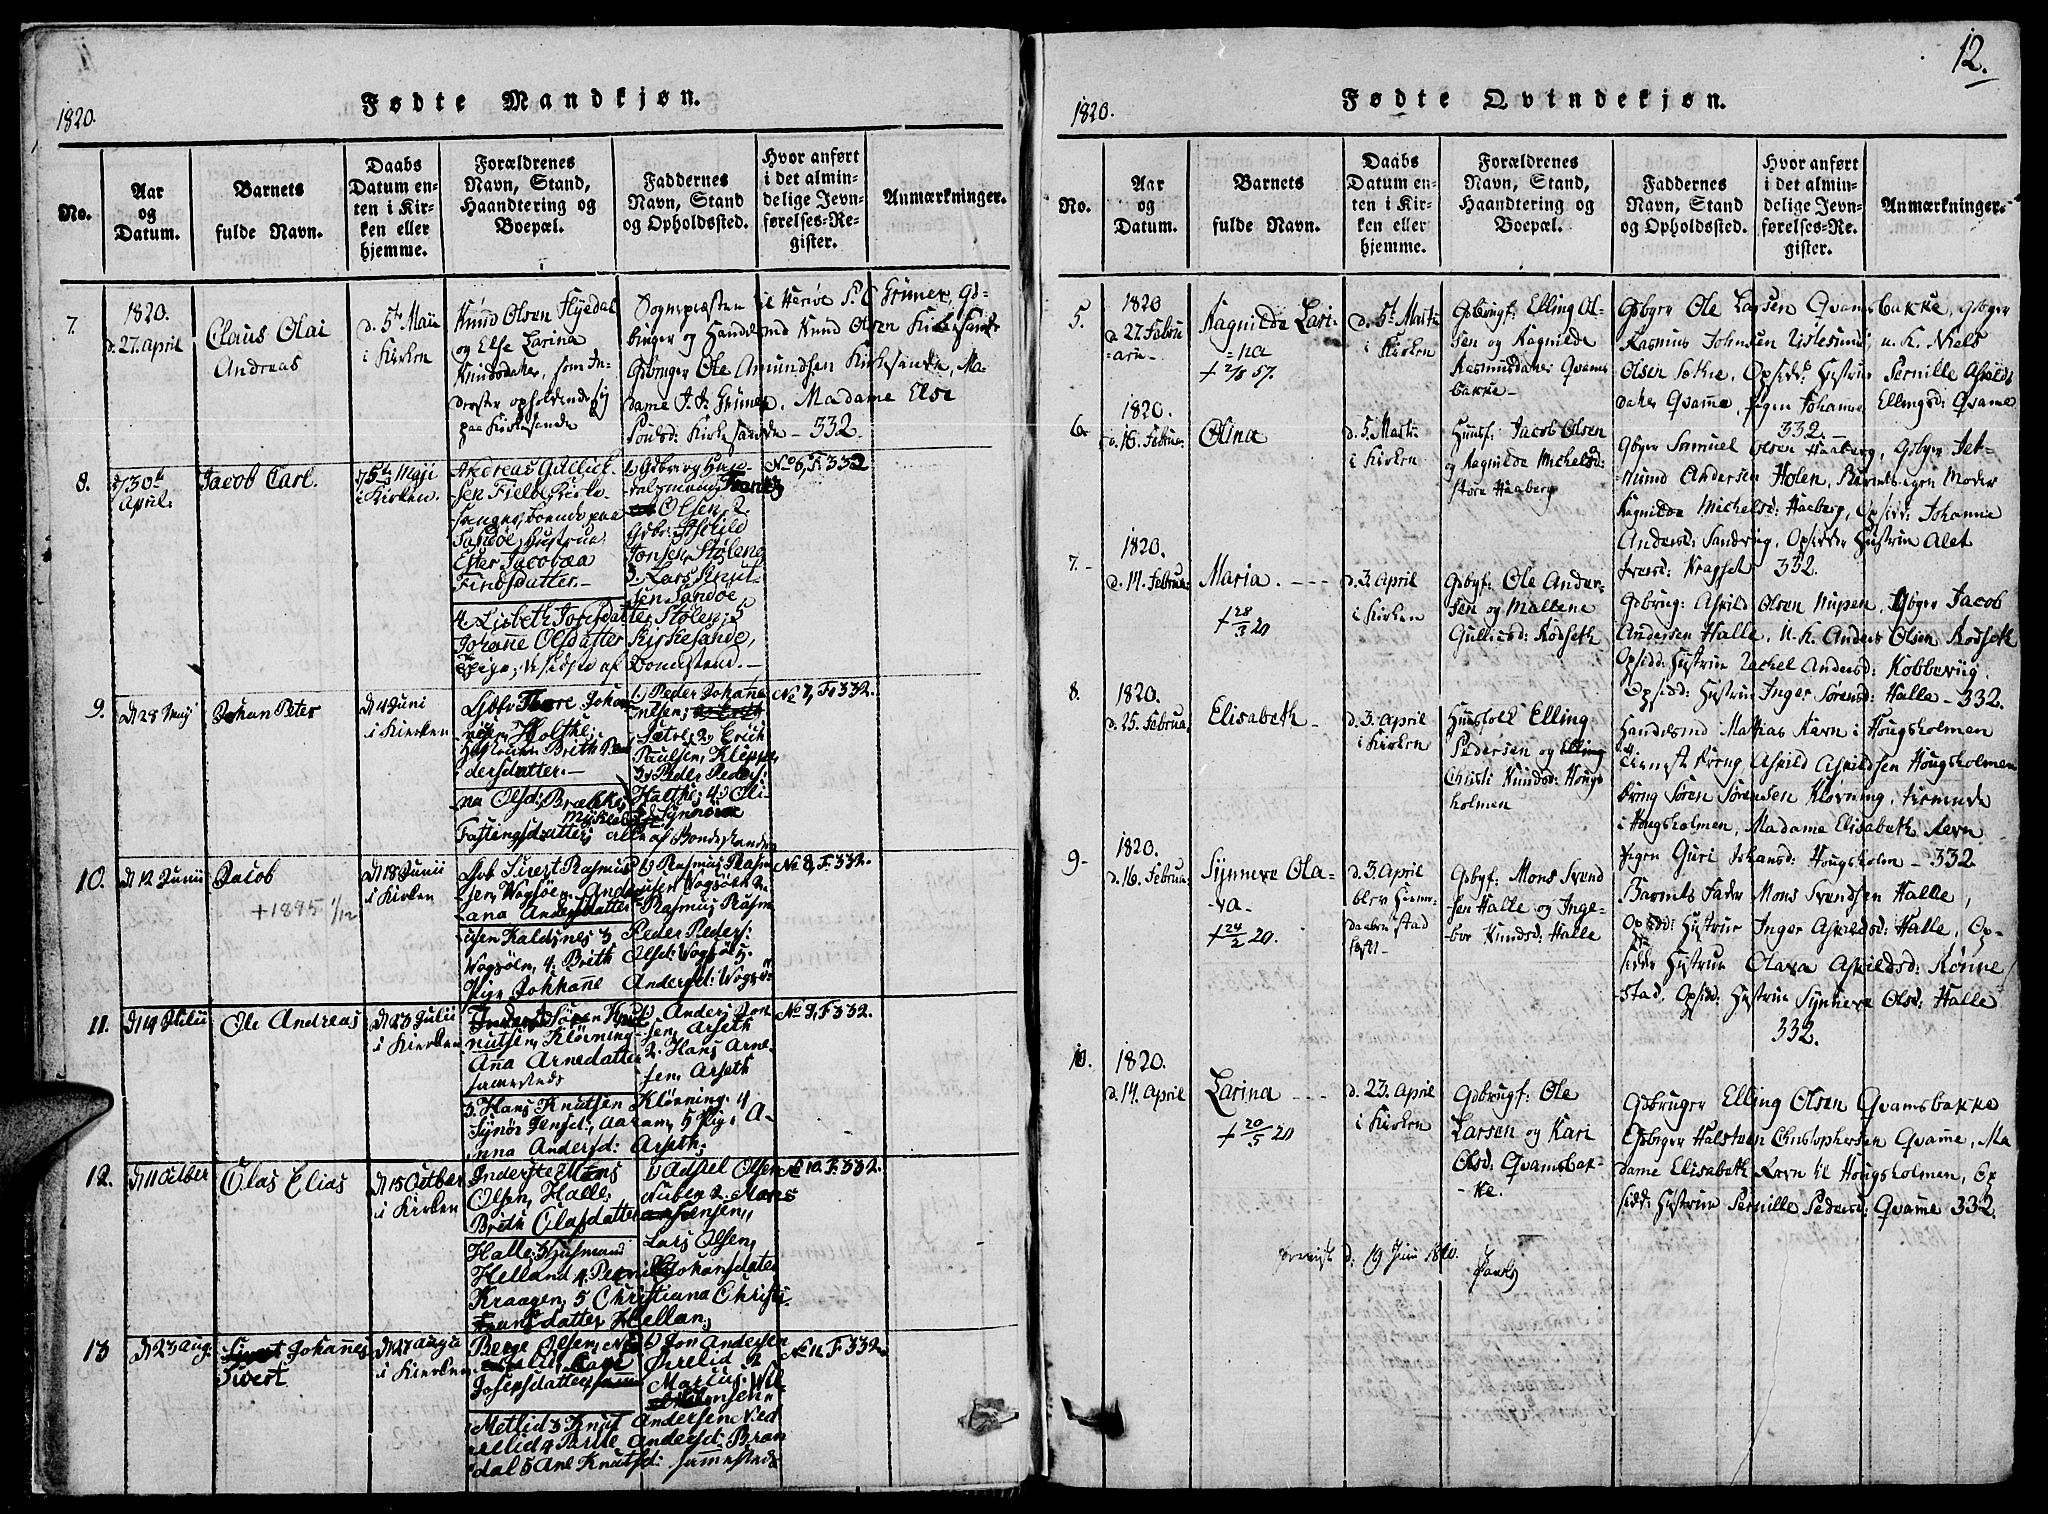 12.
1820.
Fødte Mandkjøn.
No.
Aar
og
Datum.
Barnets
fulde Navn.
Daabs
Datum en-
ten i Kir-
ken eller
hjemme.
Forældrenes
Navn, Stand,
Haandtering og
Boepæl.
Faddernes
Navn, Stand
og Opholdssted.
Hvor anført
i det almin-
delige Jevn-
førelses-Re-
gister.
Anmærkninger.
7.
1820.
d. 27. April
Claus Olai
Andreas
d. 5te Maii
i Kirken
Knud Olsen
og Else Larina
Knudsdatter, som In-
opholdende sig
paa Kirkesande
Sognepræsten til Herøe
og Handelsmd Knud Olsen Kirkesande
Ole Amundsen Kirkesande, Ma-
dame, Madame Else
Kirkesande - 332.
8.
30te
April.
Jacob Carl.
5te Maji
i Kirken.
Andreas Gullick-
sen
boende paa
Sandøe, Hustrue
Ester Jacobæa
Findsdatter.-
Olsen, 2.
Jonsen Støleng
3. Lars Knut-
sen Sandøe
4. Lisbeth Jonsdatter Støleng; 5
Johanne Olsdatter Kirkesande,
Pige, af Bondestand.-
No 6, F. 332
9.
d 28 Maij
Johan Peter
d 4 Juni
i Kierken
Thore Johan
Holthe;
Hustruen Brith Pe-
dersdatter.-
1) Peder Johan-
nesen;
Sætre, 2) Erich
Paulsen, Kleppe,
3) Peder Peders:
Halthe, 4) Oli-
na Olsd: Brække;
Myklebust. Synnöve
Fastingsdatter alle af Bondestanden
No 7, F. 332.
10.
d 12 Junii
Jacob
+1895 1/12
d 18 Junii
i Kierken
Sivert Rasmus
sen, Wogsöen, Anders
Lana Andersdatter
1) Rasmus Rasm
usen Wogsöen 2.
Rasmus Rasm
usen Kaldsnes 3 Peder Peders:
Wogsöen, 4. Brith Olsd: Wogsö 5.
Pige Johanne Andersd: Wogsö
No 8, F. 332.
11.
d 14 Julii
Ole Andreas
d 23 Julii
i Kierken
Inderst Sören Knud
nutsen, Klövning
Anna Arnedatter
sammesteds
1) Anders Jon
sen, Arseth
2. Hans Arne-
sen, Arseth
3. Hans Knutsen Klövning, 4
Synör Jensd: Aaram, 5 Pige A-
nna Andersd: Arseth;
No 9, F. 332.
12.
d 11 Octber
Olas Elias
d 15 Octber
i Kierken
Inderste Mons
Olsen, Halle;
Brith Olasdatter
1) Olsen
Nuben 2. Mons
Halle; 3 Husmand Lars Olsen,
Helland 4. Pernille Johansdatter
Kraagen, 5 Christiana Christi-
ansdatter Hellan;
No 10. F. 332.
13
d 23 Aug.
Sivert Johannes
Sivert
d 27 Augu
i Kierken
Berge Olsen,
Josepsdatter
1) Jon Andersen
Ørelid 2
Marcus
Metlid 3 Knut Andersen Ned
relid 4 Andersd: Bran
dal 5 Ane Knutsd: sammesteds
No 11. F 332.
1820.
Fødte Qvindekjøn.
No.
Aar
og
Datum.
Barnets
fulde Navn.
Daabs
Datum en-
ten i Kir-
ken eller
hjemme.
Forældrenes
Navn, Stand,
Haandtering og
Boepæl.
Faddernes
Navn, Stand
og Opholdssted.
Hvor anført
i det almin-
delige Jevn-
førelses-Re-
gister.
Anmærkninger.
5.
1820
d. 27. Febru
arii-
Ragnilde Lari-
=na
+ 2/8 57.
d. 5te Marti
i Kirken
Gdbrugf: Elling Ol-
sen og Ragnilde
Rasmusdatter Qvams
bakke-
Gdbger Ole Larsen Qvamsbakke, Gdbger
Rasmus Johnsen, U. K. Niels
Olsen Sætre, Opsidd: Hustrue Pernille
datter Qvamme, Pigen Johanne Ellingsd: Qvamme
332.
6.
1820.
d. 16. Februa.
Olina
d. 5. Marti
i Kirken
Huusf. Jacob Olsen
og Ragnilde Michelsd:
Store Haaberg
Gdbger Samuel Olsen Haaberg, Gdbger
Andersen Holen, Barnets egen Moder
Ragnilde Michelsd: Haaberg, Opsidd: Johanne
Andersd: Sandvig, Opsidder Hustrue Alet
Iversd: Kragset 332.
7.-
1820.
d. 17. Februa
Maria.
+ 28/3 20
d. 3. April
i Kirken
Gdbrf: Ole Ander-
sen og Mallene
Gulliksd: Rødseth
Gdbrug: Olsen Nupen, Gdbger Jacob
Andersen Halle, U. K. Anders Olsen Rødseth
Opsidd: Hustrue Rachel Andersd: Kobbevig
Opsidd: Hustrue Inger Sørensd: Halle - 332.
8.
1820.
d. 25. Februa
Elisabeth -
d. 3. April
i Kirken
Huusfolk Elling
Pedersen og Elling
Christi Knudsd: Houg
holmen
Handelsmd Mathias Ravn i Hougsholmen
Hougsholmen
Søren Sørensen Klovning, tienende
i Hougsholmen, Madame Elisabeth Ravn
Pigen Guri Johansd: Hougsholm - 332.
9-
1820.
d. 16. Februa
Synneve Ola-
-va-
+ 24/2 20.
d. 3. April
blev Hiemme-
daaben stad
fæst-
Gdbrf: Mons Svend
sen Halle og Inge-
bor Knudsd: Halle
Barnets Fader Mons Svendsen Halle,
Opsidd: Hustrue Inger: Halle, Op-
sidder Hustrue Olava: Rønne
stad, Opsidd: Hustrue Synneve Olsd: Halle
332.
10.
1820.
d. 14 April
Larina
+ 20/5 20
d. 23. April
i Kirken
Gdbrugf: Ole
Larsen og Kari
Olsd: Qvamsbak-
-ke.
Gdbruger Elling Olsen Qvamsbakke
Gdbger Halsteen Christophersen Qvamme, Ma
dame Elisabeth Ravn til Hougsholmen, Op
sidd: Hustrue Pernille Pedersd: Qvamme 332.
d. 19 Juni 1820.